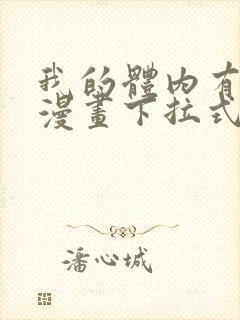 我的體內有
漫畫下拉式
潘心城